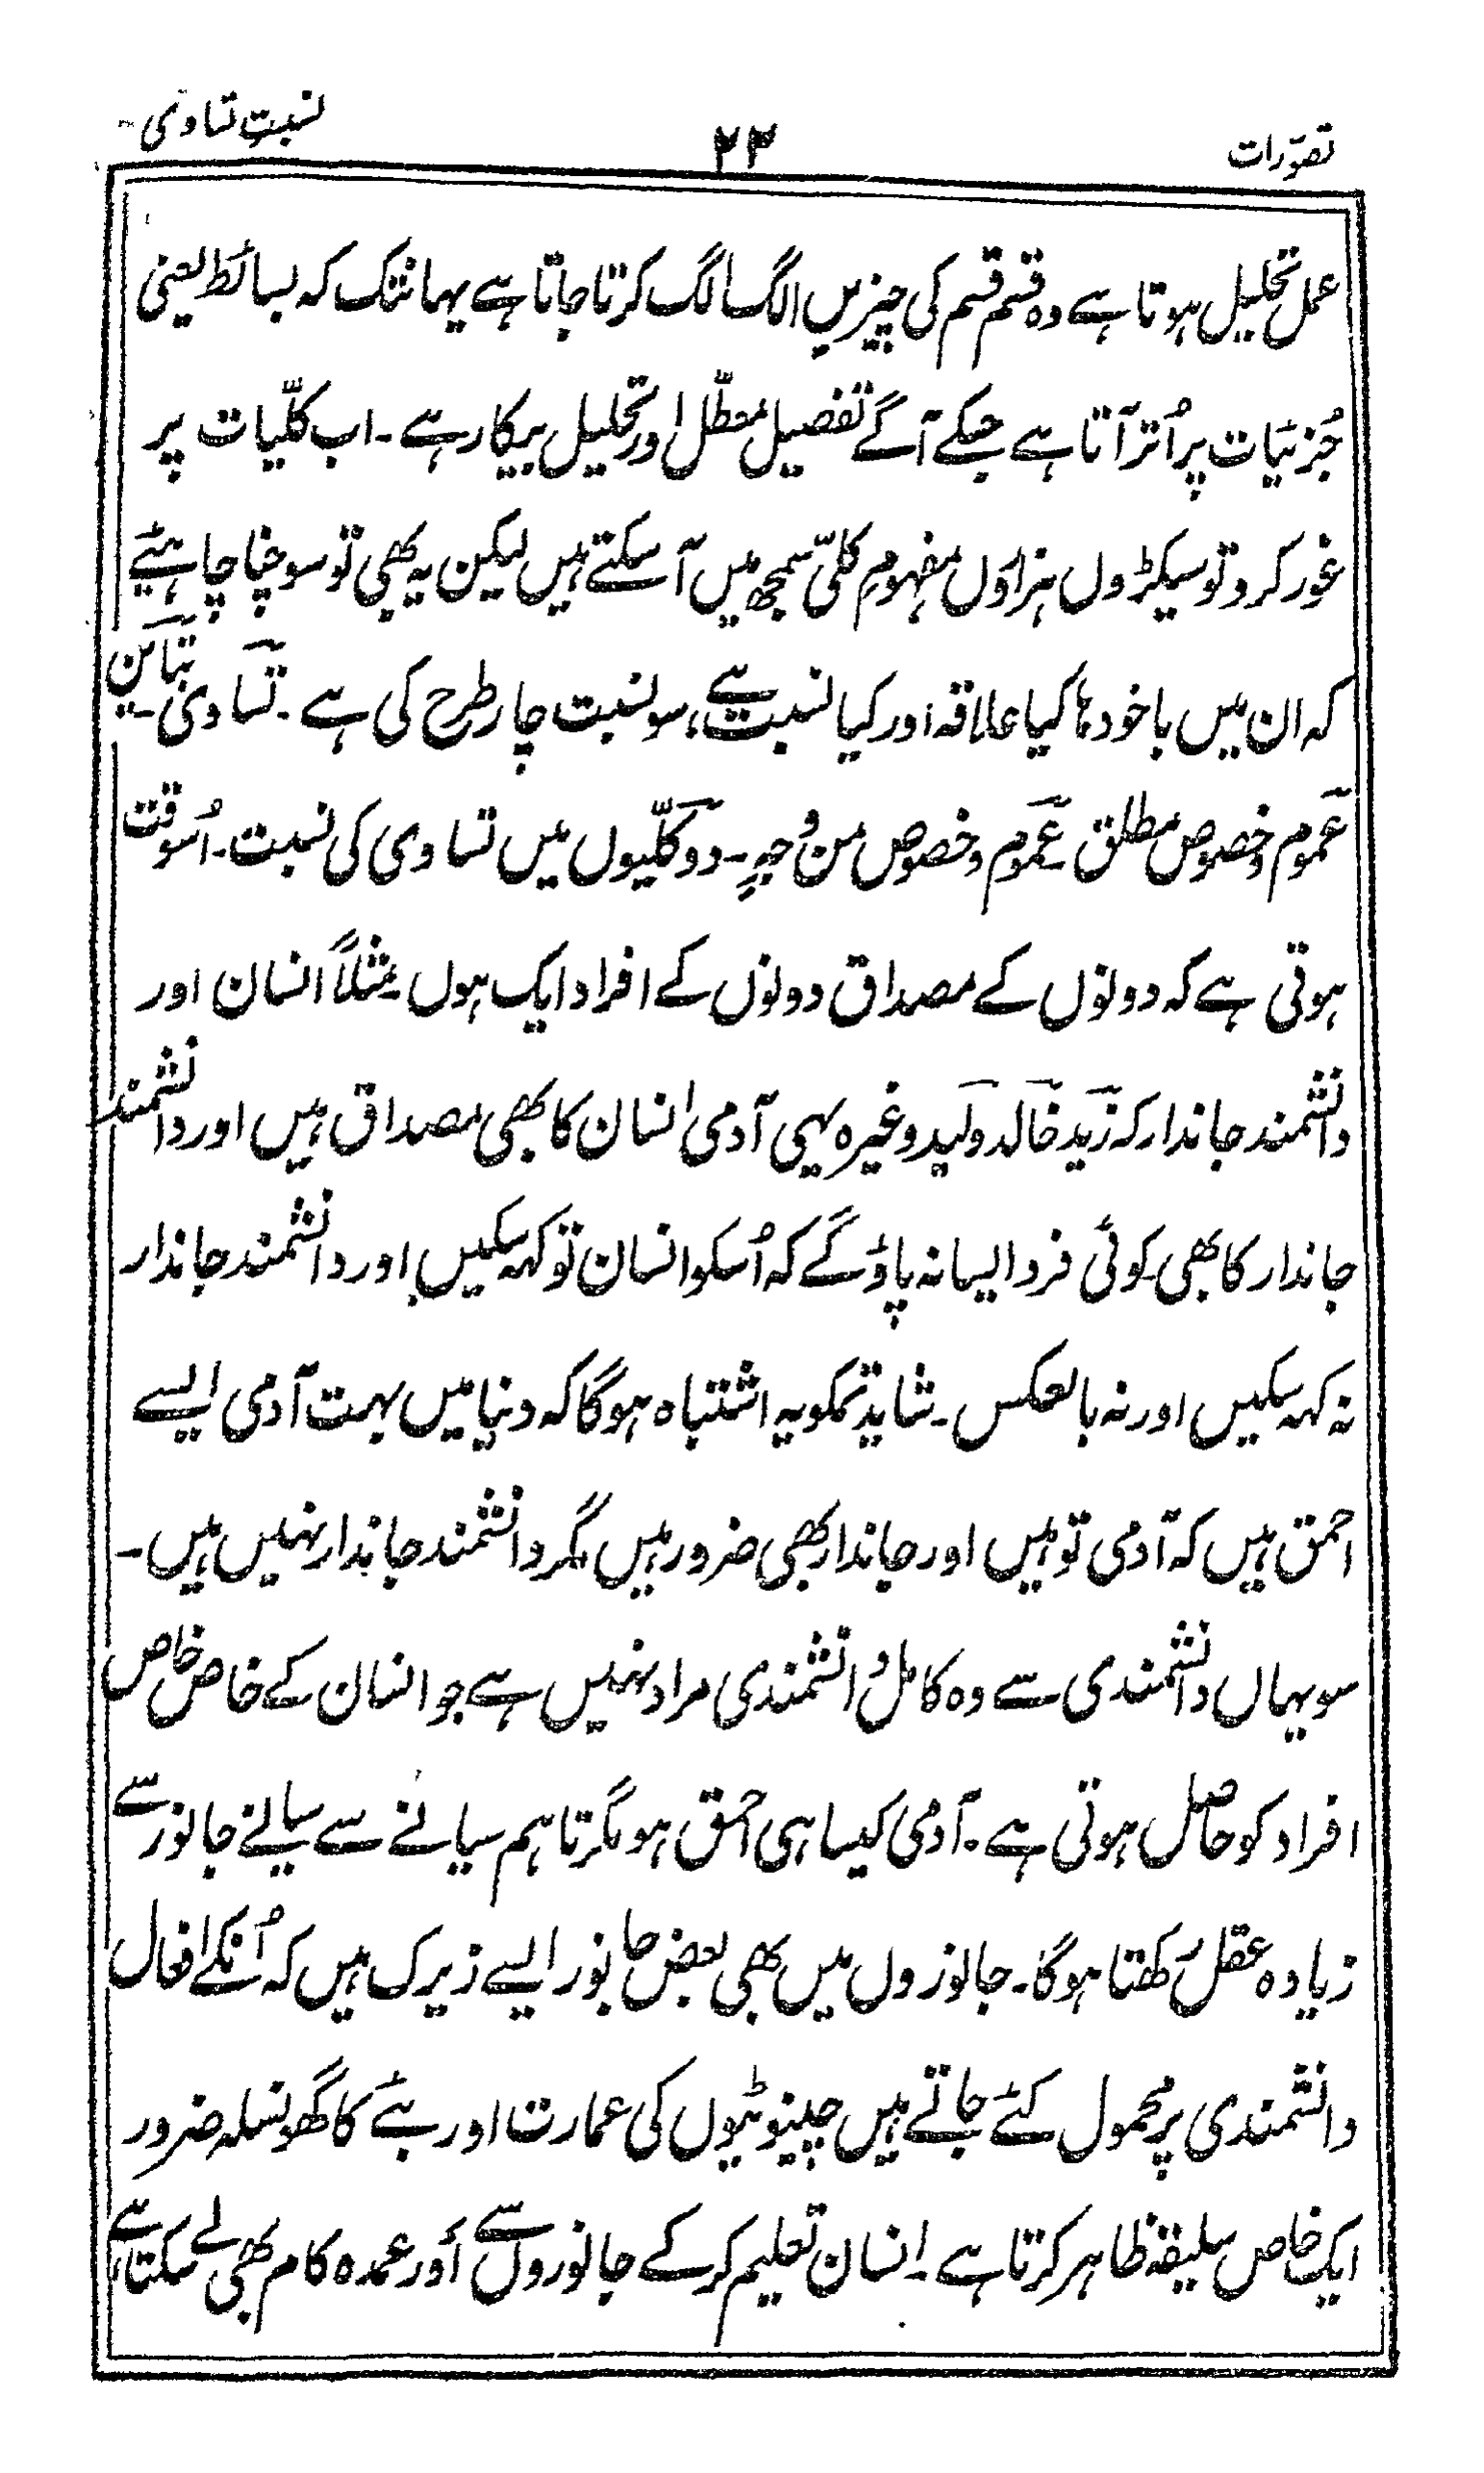 تصوّرات ۲۳ نسبتِ تساوی
عمل تحلیل ہوتا ہے وہ قسم قسم کی چیزیں الگ الگ کرتا جاتا ہے یہانتک کہ بسائط یعنی
جُزئیات پر اُتر آتا ہے جسکے آگے تفصیل معطّل اور تحلیل بیکار ہے ۔ اب کلّیات پر
غور کرو تو سیکڑوں ہزاروں مفہومِ کلّی سمجھ میں آ سکتے ہیں لیکن یہ بھی تو سوچنا چاہئیے
کہ ان میں باخودہا کیا علاقہ اور کیا نسبت ہے، سو نسبت چار طرح کی ہے ۔ تساوی ۔ تباین ۔
عموم و خصوص مطلق ۔ عموم و خصوص من وجہٍ ۔ دو کلّیوں میں تساوی کی نسبت ۔ اُسوقت
ہوتی ہے کہ دونوں کے مصداق دونوں کے افراد ایک ہوں ۔ مثلاً انسان اور
دانشمند جاندار کہ زید خالد ولید وغیرہ یہی آدمی انسان کا بھی مصداق ہیں اور دانشمند
جاندار کا بھی ۔ کوئی فرد ایسا نہ پاؤ گے کہ اُسکو انسان تو کہہ سکیں اور دانشمند جاندار
نہ کہہ سکیں اور نہ بالعکس ۔ شاید تمکو یہ اشتباہ ہوگا کہ دنیا میں بہت آدمی ایسے
احمق ہیں کہ آدمی تو ہیں اور جاندار بھی ضرور ہیں مگر دانشمند جاندار نہیں ہیں ۔
سو یہاں دانشمندی سے وہ کامل دانشمندی مراد نہیں ہے جو انسان کے خاص خاص
افراد کو حاصل ہوتی ہے ۔ آدمی کیسا ہی احمق ہو مگر تاہم سیانے سے سیانے جانور سے
زیادہ عقل رکھتا ہوگا ۔ جانوروں میں بھی بعض جانور ایسے زیرک ہیں کہ اُنکے افعال
دانشمندی پر محمول کئے جاتے ہیں چینوٹیوں کی عمارت اور بئے کا گھونسلہ ضرور
ایک خاص سلیقہ ظاہر کرتا ہے ۔ انسان تعلیم کر کے جانوروں سے اَور عمدہ کام بھی لے سکتا ہے،